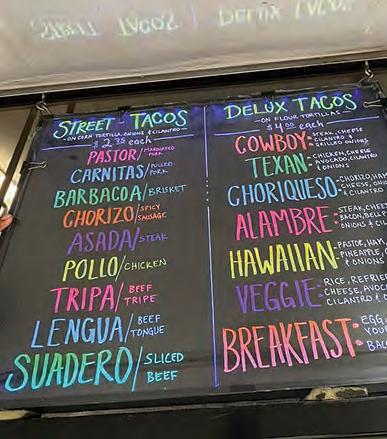 STREET - TACOS
—ON CORN TORTILLA, ONIONS & CILANTRO—
each
PASTOR/MARINATED PORK
CARNITAS/PULLED PORK
BARBACOA/BRISKET
CHORIZO/SPICY SAUSAGE
ASADA/STEAK
POLLO/CHICKEN
TRIPA/BEEF TRIPE
LENGUA/BEEF TONGUE
SUADERO/SLICED BEEF
DELUX TACOS
—ON FLOUR TORTILLAS—
$4.00 each
COWBOY: STEAK, CHEESE
CILANTRO &
GRILLED ONIONS
TEXAN: CHICKEN, CHEESE
AVOCADO, CILANTRO
& ONIONS
CHORIQUESO: CHORIZO, HAM
CHEESE,
& CILANTRO
ALAMBRE: STEAK, CHEESE
BACON, BELL
& ONIONS
HAWAIIAN: PASTOR, HAM,
PINEAPPLE,
& ONIONS
VEGGIE: RICE, REFRIED
CHEESE, AVOC
CILANTRO &
BREAKFAST: EGG,
YOU
BAC